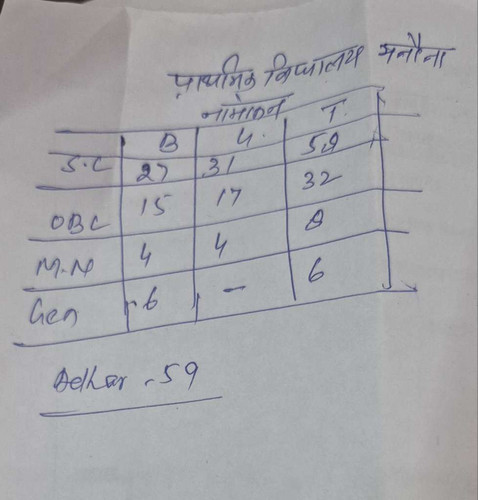 प्राथमिक विद्यालय मनौना
नामांकन
B G. T.
S.C 27 31 58
OBC 15 17 32
M.N 4 4 8
Gen 6 - 6
Adhar - 59